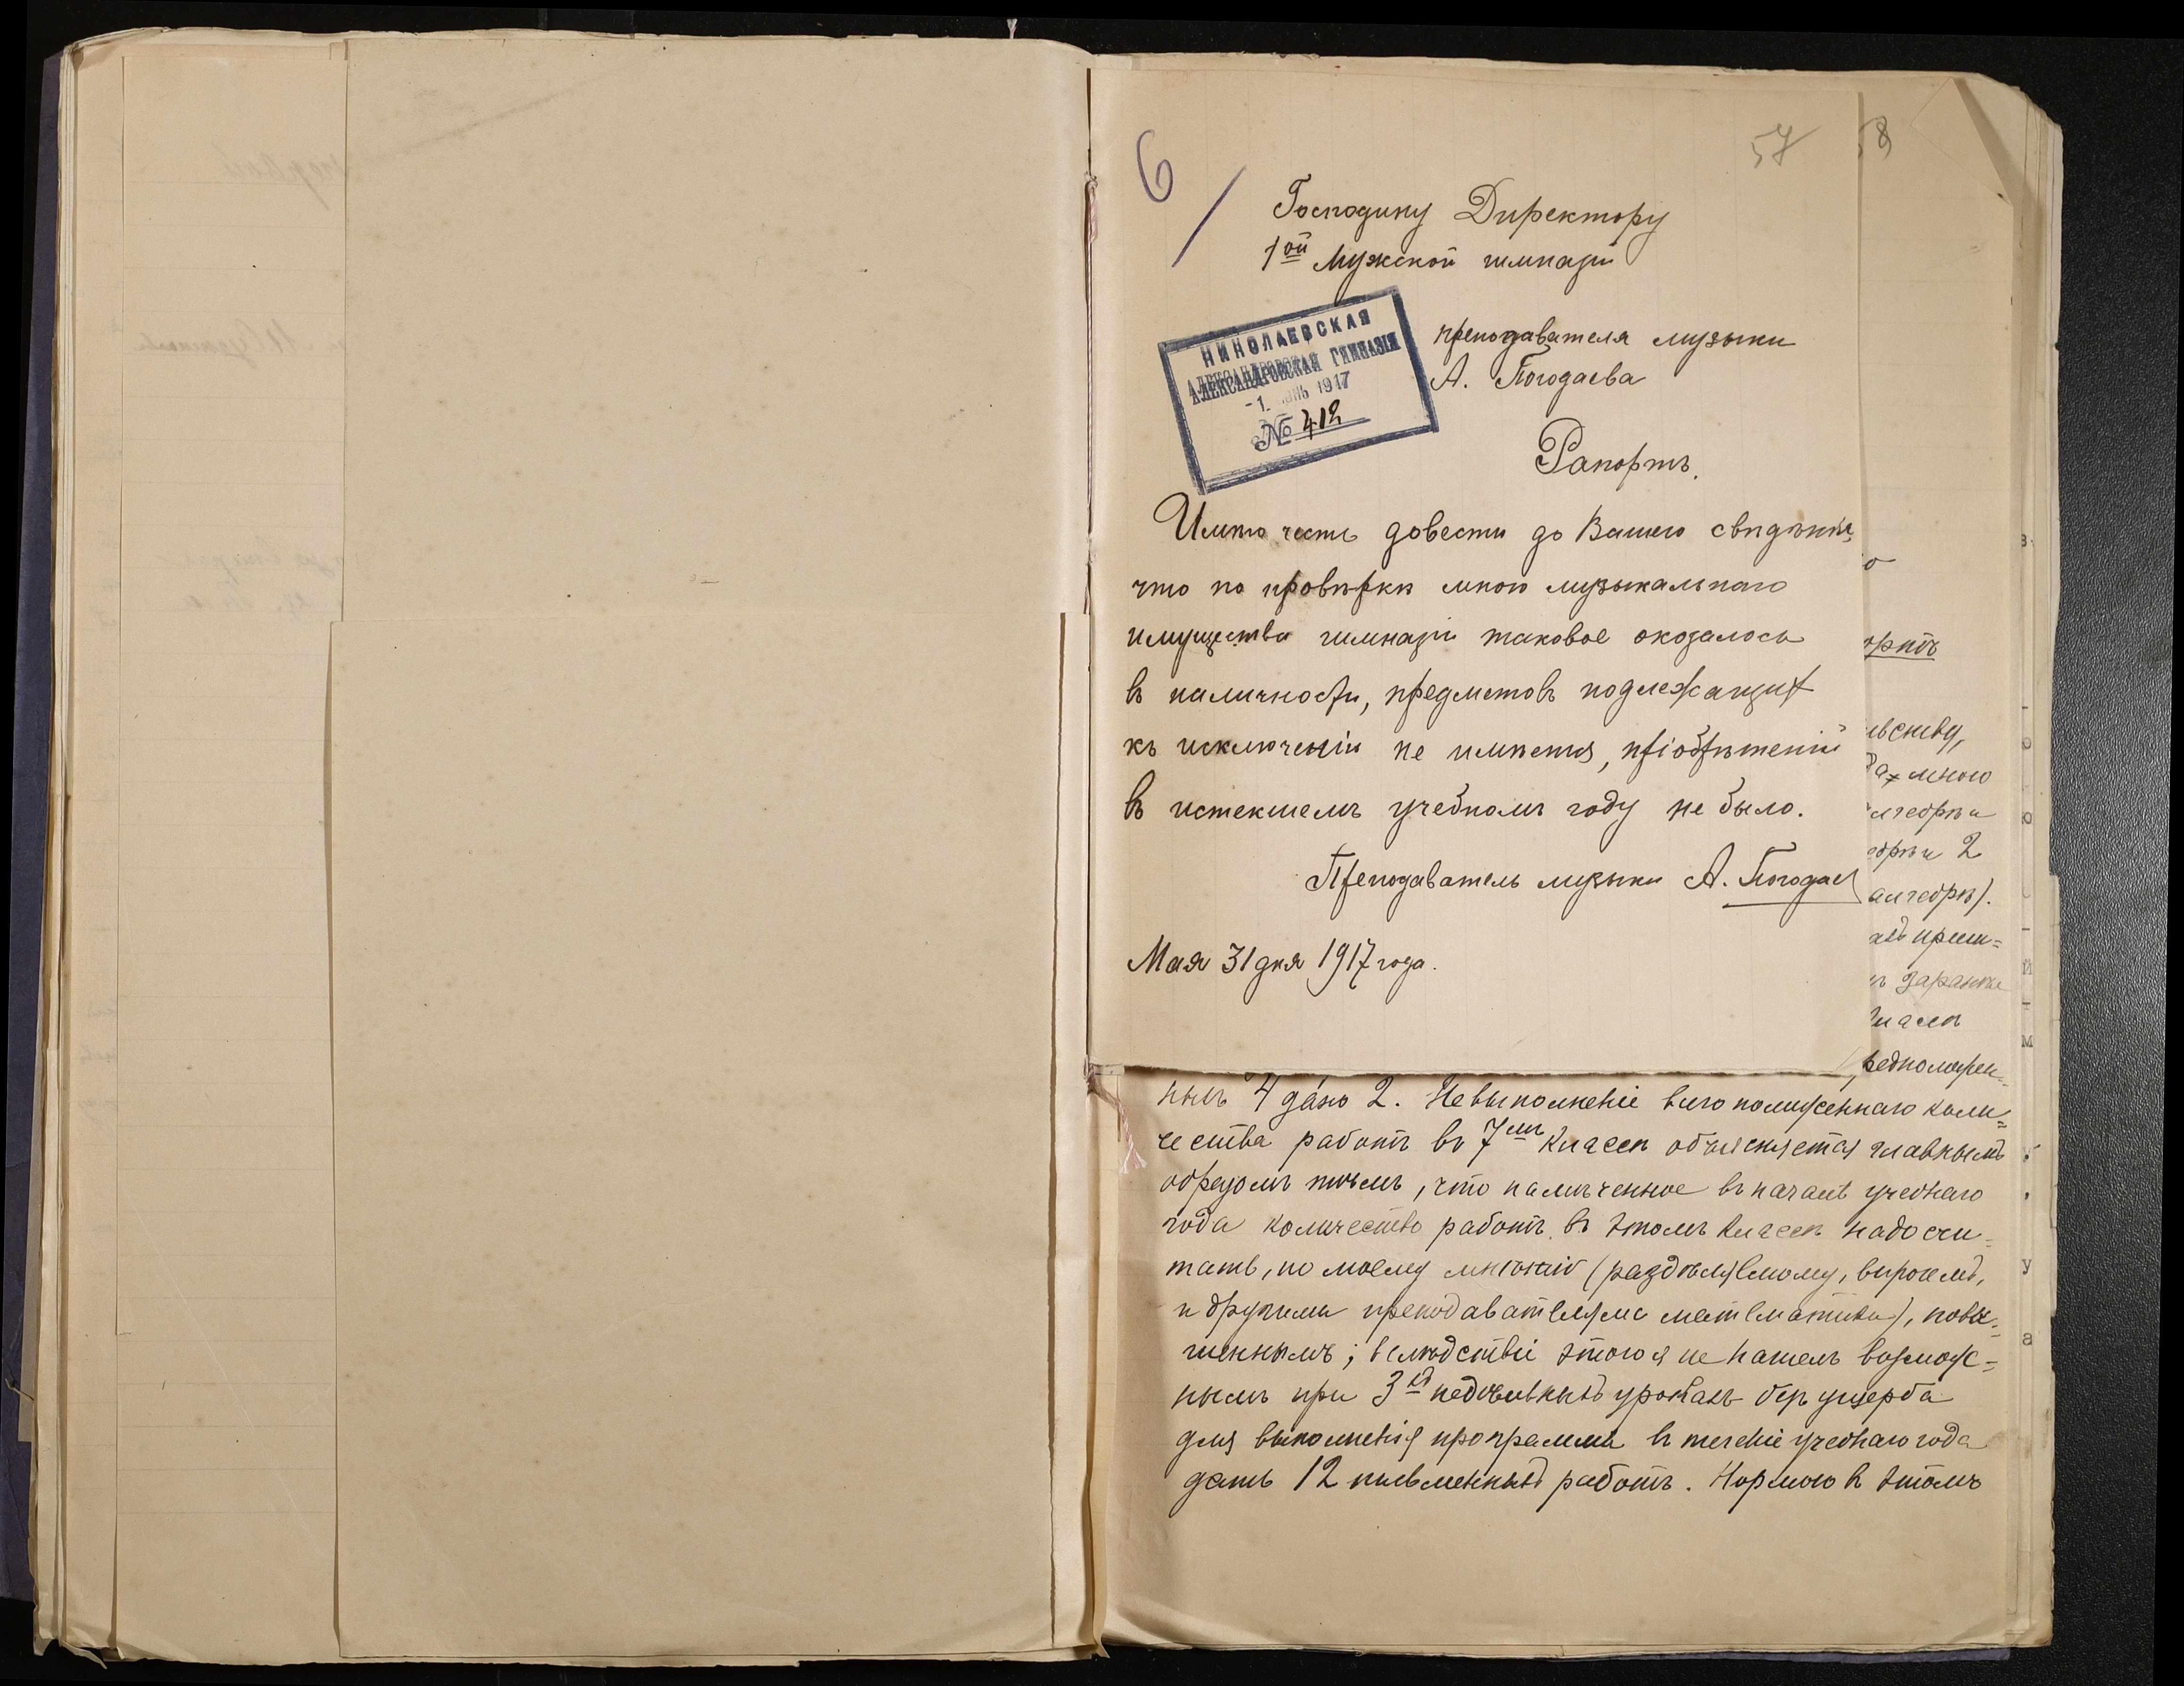 6
57
58
Господину Директору
1ой Мужской гимназіи
НИКОЛАЕВСКАЯ
АЛЕКСАНДРОВСКАЯ ГИМНАЗІЯ
-1. 1917
№ 412
преподавателя музыки
А. Погодаева
Рапортъ.
Имѣю честь довести до Вашего свѣдѣнія,
что по провѣркѣ мною музыкальнаго
имущества гимназіи таковое оказалось
въ наличности, предметовъ подлежащих
къ исключенію не имѣется, пріобрѣтеній
въ истекшемъ учебномъ году не было.
Преподаватель музыки А. Погодаев
Мая 31 дня 1917 года.
о
ортъ
мною
алгебрѣ).
нымъ 4 дано 2. Невыполненіе всего положеннаго коли=
чества работъ въ 7мъ классѣ объясняется главнымъ
образомъ тѣмъ, что намѣченное въ началѣ учебнаго
года количество работъ въ этомъ классѣ надо счи=
тать, по моему мнѣнію (раздѣляемому, впрочемъ,
и другими преподавателями математики), повы=
шеннымъ; вслѣдствіе этого я не нашелъ возмож=
нымъ при 3хъ недѣльныхъ урокахъ безъ ущерба
для выполненія программы въ теченіе учебнаго года
дать 12 письменныхъ работъ. Нормою въ этомъ